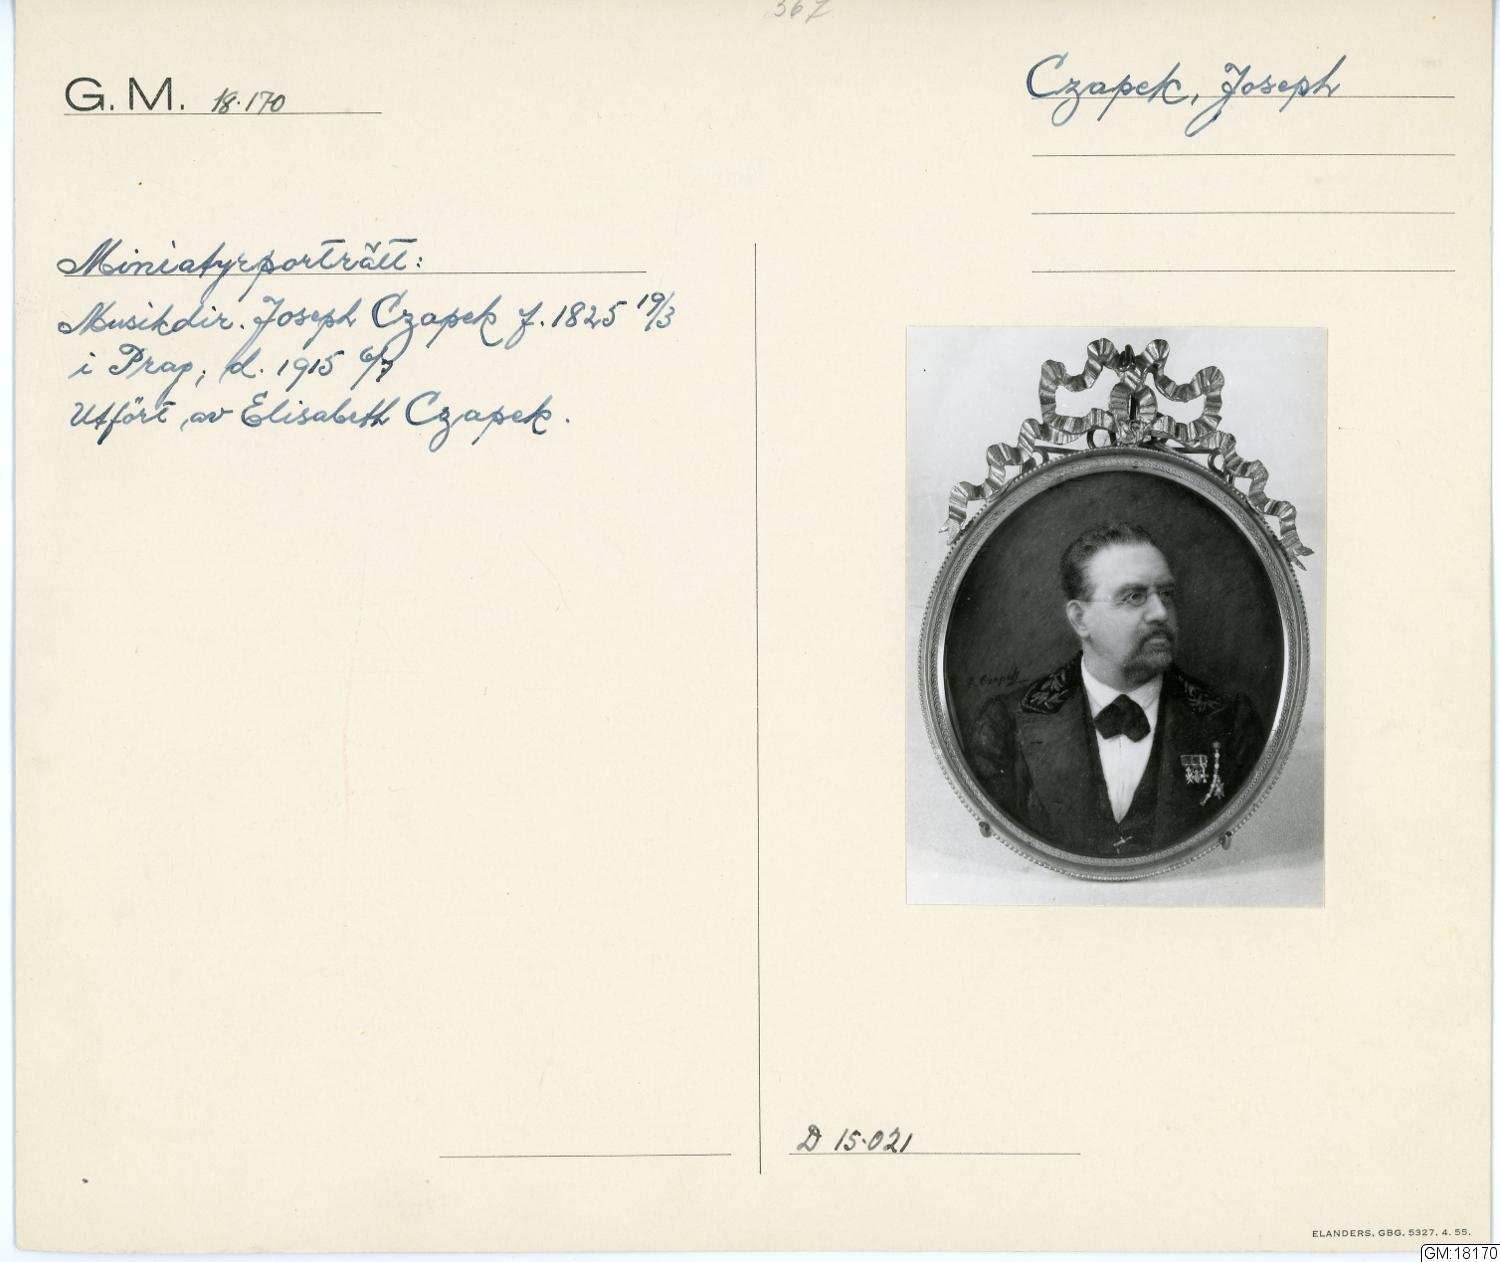 367
G. M. 18.170
Czapek, Joseph
Miniatyrporträtt:
Musikdir. Joseph Czapek f. 1825 19/3
i Prag, d. 1915 6/7
Utfört av Elisabeth Czapek.
E. Czapek
D 15.021
ELANDERS, GBG. 5327. 4. 55.
GM:18170